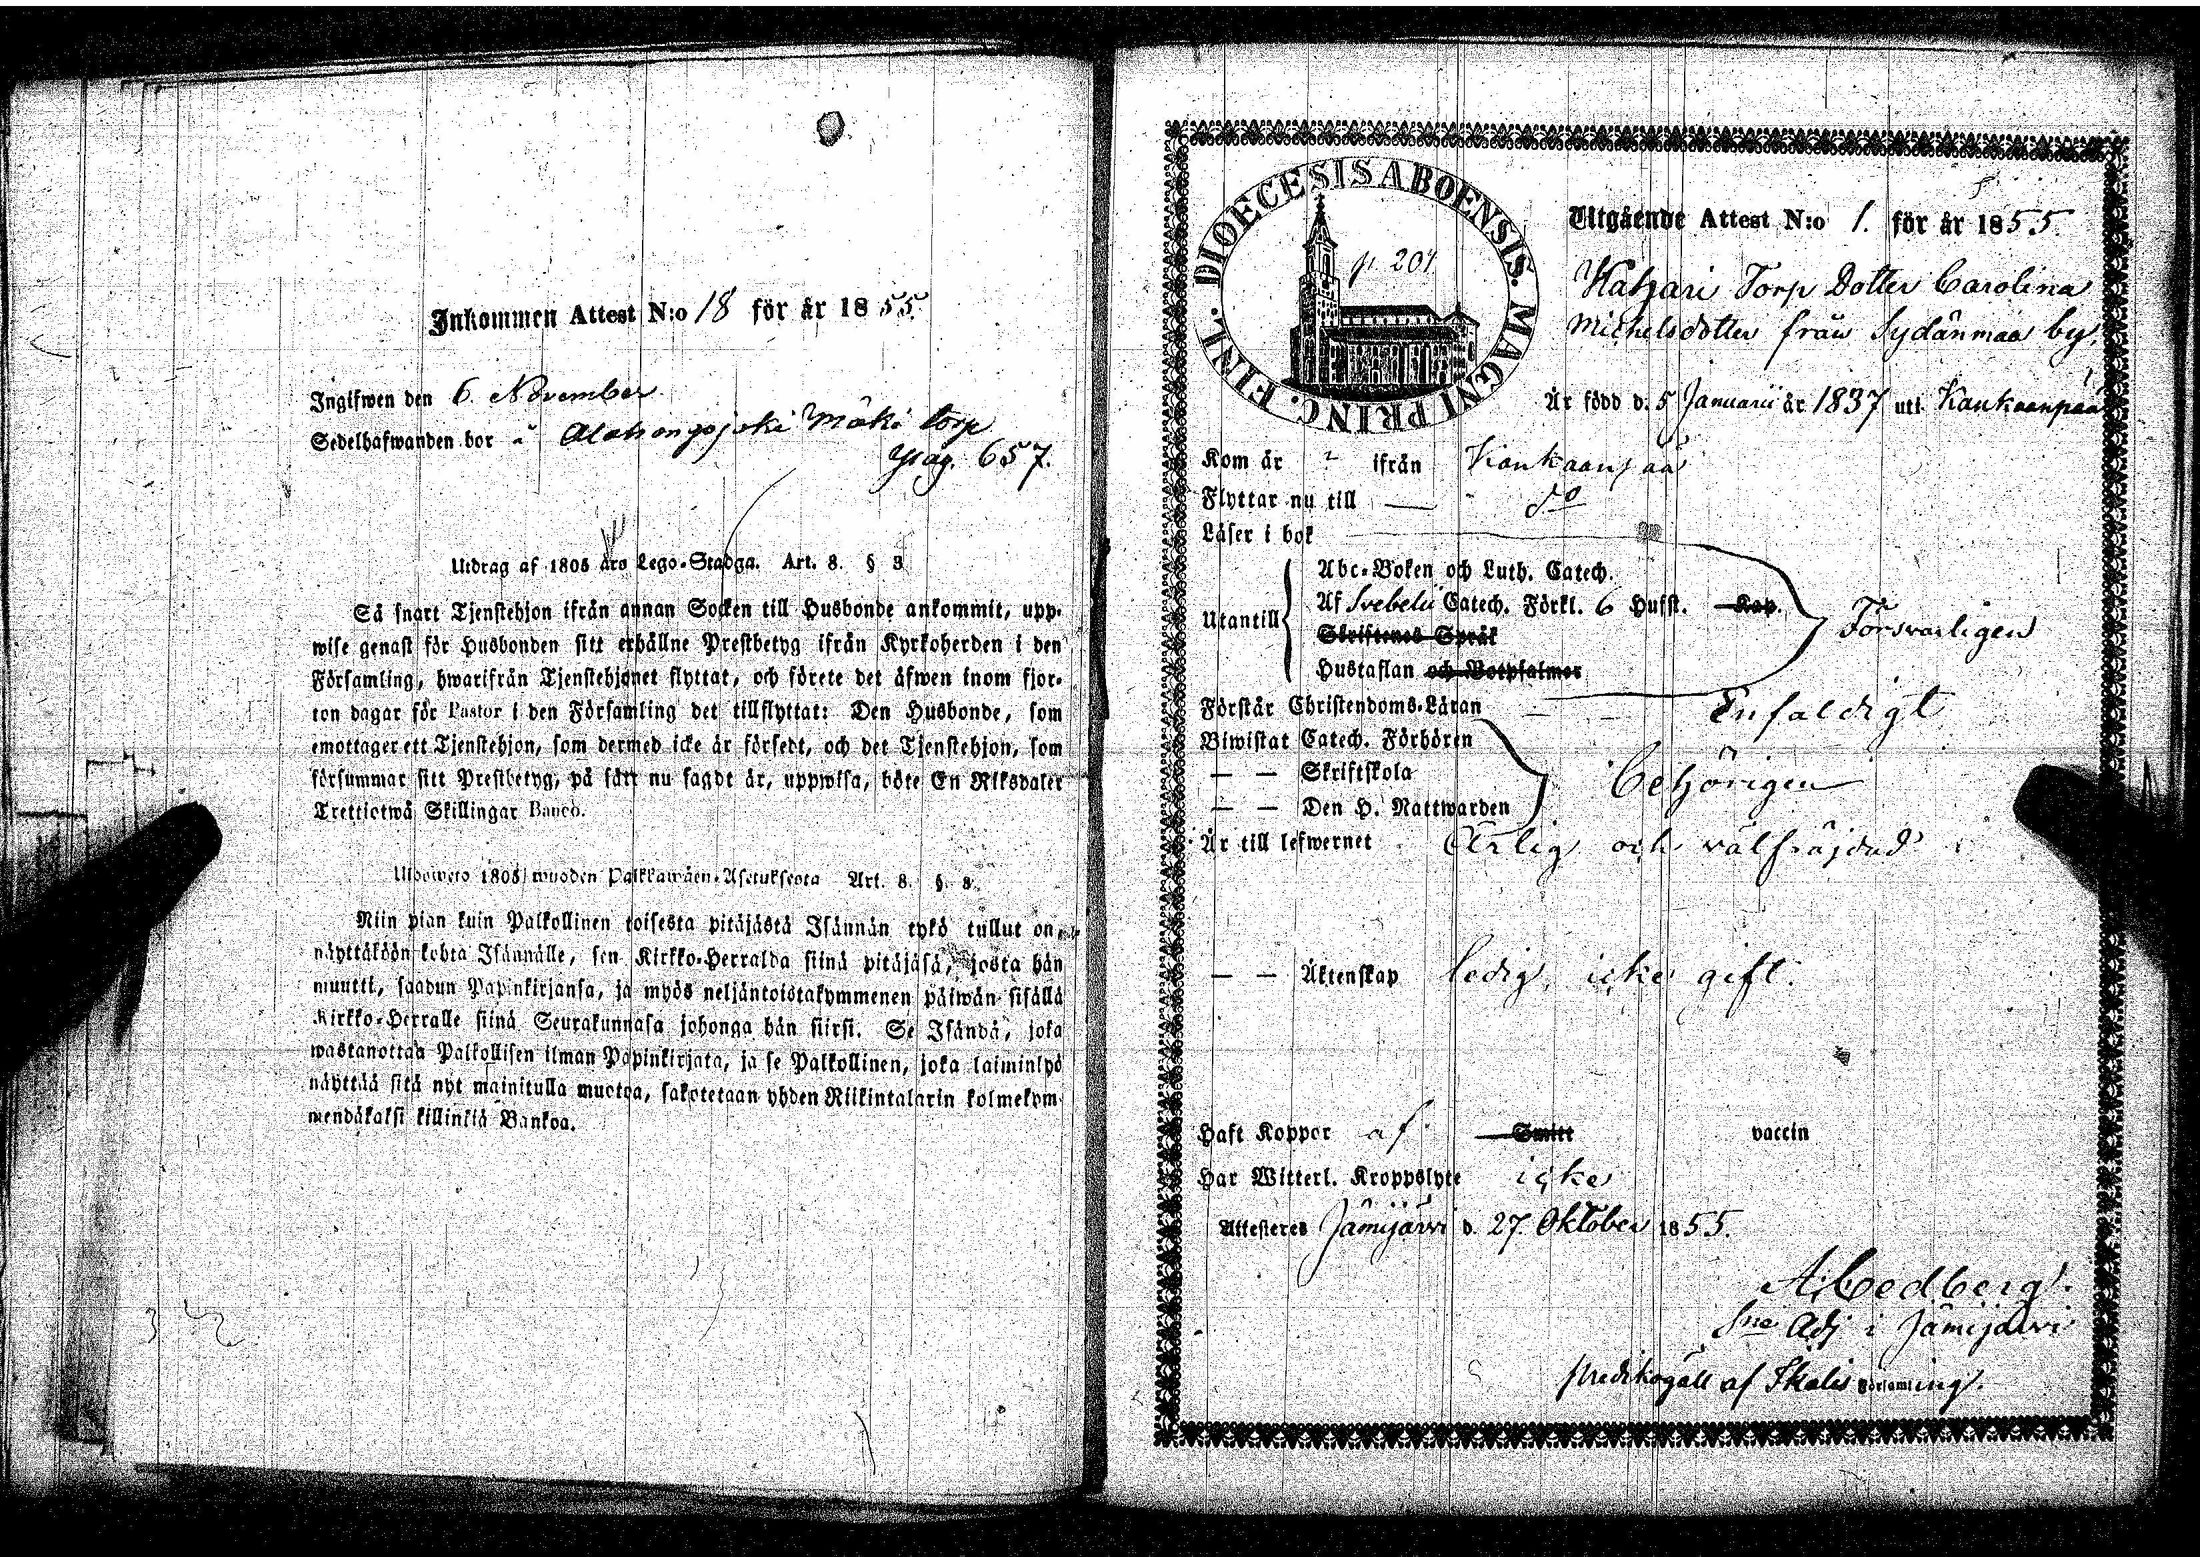 Inkommen Attest N:o 18 för år 1855.
Ingifwen den 6. November
Sedelhafwanden bor å Alahongojoki Mäki torp
pag. 657.
Utdrag af 1805 års Lego-Stadga. Art. 8. § 3
Så snart Tjenstehjon ifrån annan Socken till Husbonde ankommit, upp-
wise genast för Husbonden sitt erhållne Prestbetyg ifrån Kyrkoherden i den
Församling, hwarifrån Tjenstehjonet flyttat, och förete det äfwen inom fjor-
ton dagar för Pastor i den Församling det tillflyttat: Den Husbonde, som
emottager ett Tjenstehjon, som dermed icke är försedt, och det Tjenstehjon, som
försummar sitt Prestbetyg, på sätt nu sagdt är, uppwisa, böte En Riksdaler
Trettiotwå Skillingar Banco.
Ulosweto 1805 wuoden Palkkawäen-Asetuksesta Art. 8. §. 3.
Niin pian kuin Palkollinen toisesta pitäjästä Isännän tykö tullut on,
näyttäköön kohta Isännälle, sen Kirkko-Herralda siinä pitäjäsä, josta hän
muutti, saadun Papinkirjansa, ja myös neljäntoistakymmenen päiwän sisällä
Kirkko-Herralle siinä Seurakunnasa johonga hän siirsi. Se Isändä, joka
wastanottaa Palkollisen ilman Papinkirjata, ja se Palkollinen, joka laiminlyö
näyttää sitä nyt mainitulla muotoa, sakotetaan yhden Riikintalarin kolmekym-
mendäkaksi killinkiä Bankoa.
DIOECESIS ABOENSIS. MAGNI PRINC. FINL.
p. 204
Utgående Attest N:o 1. för år 1855.
Katzari Torp Dotter Carolina
Michelsdotter från Sydänmaa by.
Är född d. 5 Januarii år 1837 uti Kankaanpää
Kom år ifrån Kankaanpää
Flyttar nu till — do
Läser i bok
Utantill
Abc-Boken och Luth. Catech.
Af Svebelii Catech. Förkl. 6 Hufst. Kap.
Skriftenes Språk
Hustaflan och Botpsalmer
Försvarligen
Förstår Christendoms-Läran — — Enfaldigt
Biwistat Catech. Förhören
— — Skriftskola
— — Den H. Nattwarden
behörigen
Är till lefwernet Ärlig och välfräjdad
— — Äktenskap ledig, icke gift.
Haft Koppor af Smitt vaccin
Har Witterl. Kroppslyte icke
Attesteres Jämijärvi d. 27. Oktober 1855.
A. Cedberg.
Sne Adj i Jämijärvi
predikogäll af Ikalis Församling.